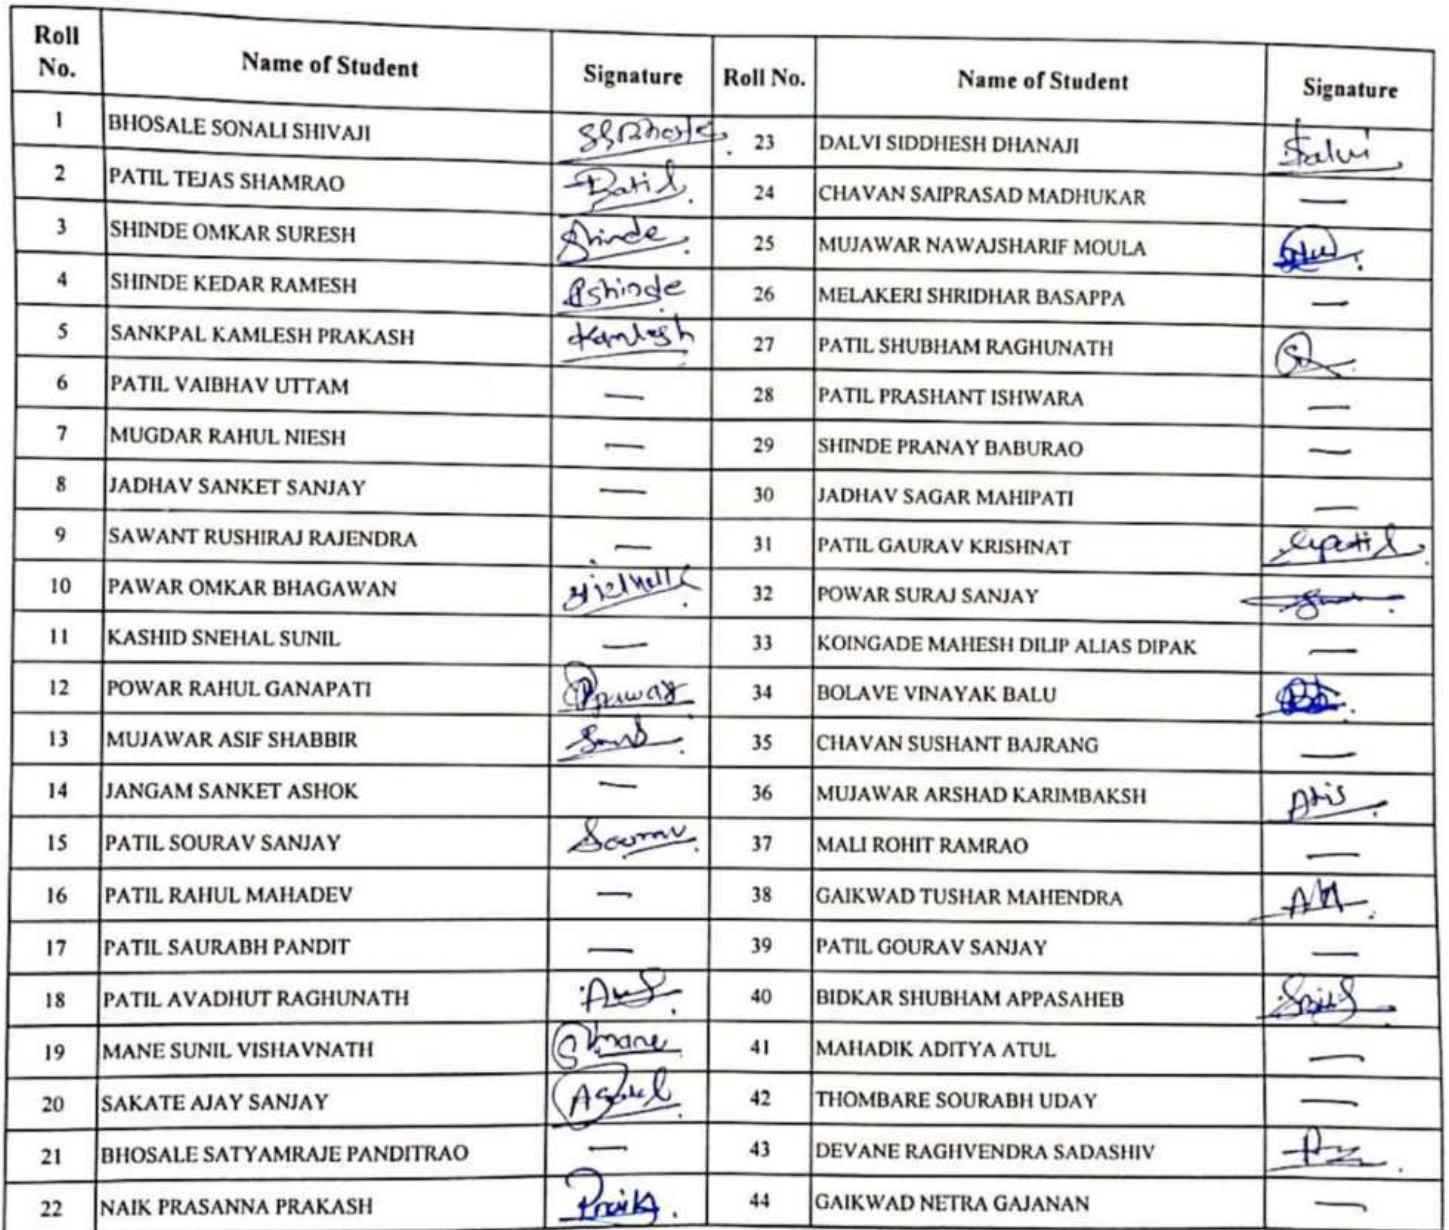 Roll No. Name of Student Signature Roll No. Name of Student Signature
1 BHOSALE SONALI SHIVAJI 23 DALVI SIDDHESH DHANAJI Dalvi
2 PATIL TEJAS SHAMRAO Patil 24 CHAVAN SAIPRASAD MADHUKAR —
3 SHINDE OMKAR SURESH Shinde 25 MUJAWAR NAWAJSHARIF MOULA
4 SHINDE KEDAR RAMESH 26 MELAKERI SHRIDHAR BASAPPA —
5 SANKPAL KAMLESH PRAKASH Kamlesh 27 PATIL SHUBHAM RAGHUNATH
6 PATIL VAIBHAV UTTAM — 28 PATIL PRASHANT ISHWARA —
7 MUGDAR RAHUL NIESH — 29 SHINDE PRANAY BABURAO —
8 JADHAV SANKET SANJAY — 30 JADHAV SAGAR MAHIPATI —
9 SAWANT RUSHIRAJ RAJENDRA — 31 PATIL GAURAV KRISHNAT
10 PAWAR OMKAR BHAGAWAN 32 POWAR SURAJ SANJAY
11 KASHID SNEHAL SUNIL — 33 KOINGADE MAHESH DILIP ALIAS DIPAK —
12 POWAR RAHUL GANAPATI 34 BOLAVE VINAYAK BALU
13 MUJAWAR ASIF SHABBIR 35 CHAVAN SUSHANT BAJRANG —
14 JANGAM SANKET ASHOK — 36 MUJAWAR ARSHAD KARIMBAKSH
15 PATIL SOURAV SANJAY 37 MALI ROHIT RAMRAO —
16 PATIL RAHUL MAHADEV — 38 GAIKWAD TUSHAR MAHENDRA
17 PATIL SAURABH PANDIT — 39 PATIL GOURAV SANJAY —
18 PATIL AVADHUT RAGHUNATH 40 BIDKAR SHUBHAM APPASAHEB
19 MANE SUNIL VISHAVNATH 41 MAHADIK ADITYA ATUL —
20 SAKATE AJAY SANJAY 42 THOMBARE SOURABH UDAY —
21 BHOSALE SATYAMRAJE PANDITRAO — 43 DEVANE RAGHVENDRA SADASHIV
22 NAIK PRASANNA PRAKASH 44 GAIKWAD NETRA GAJANAN —